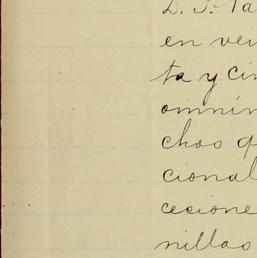 D. J. Ta
en ven
ta y cin
omnim
chos q
cional
cecione
nillas